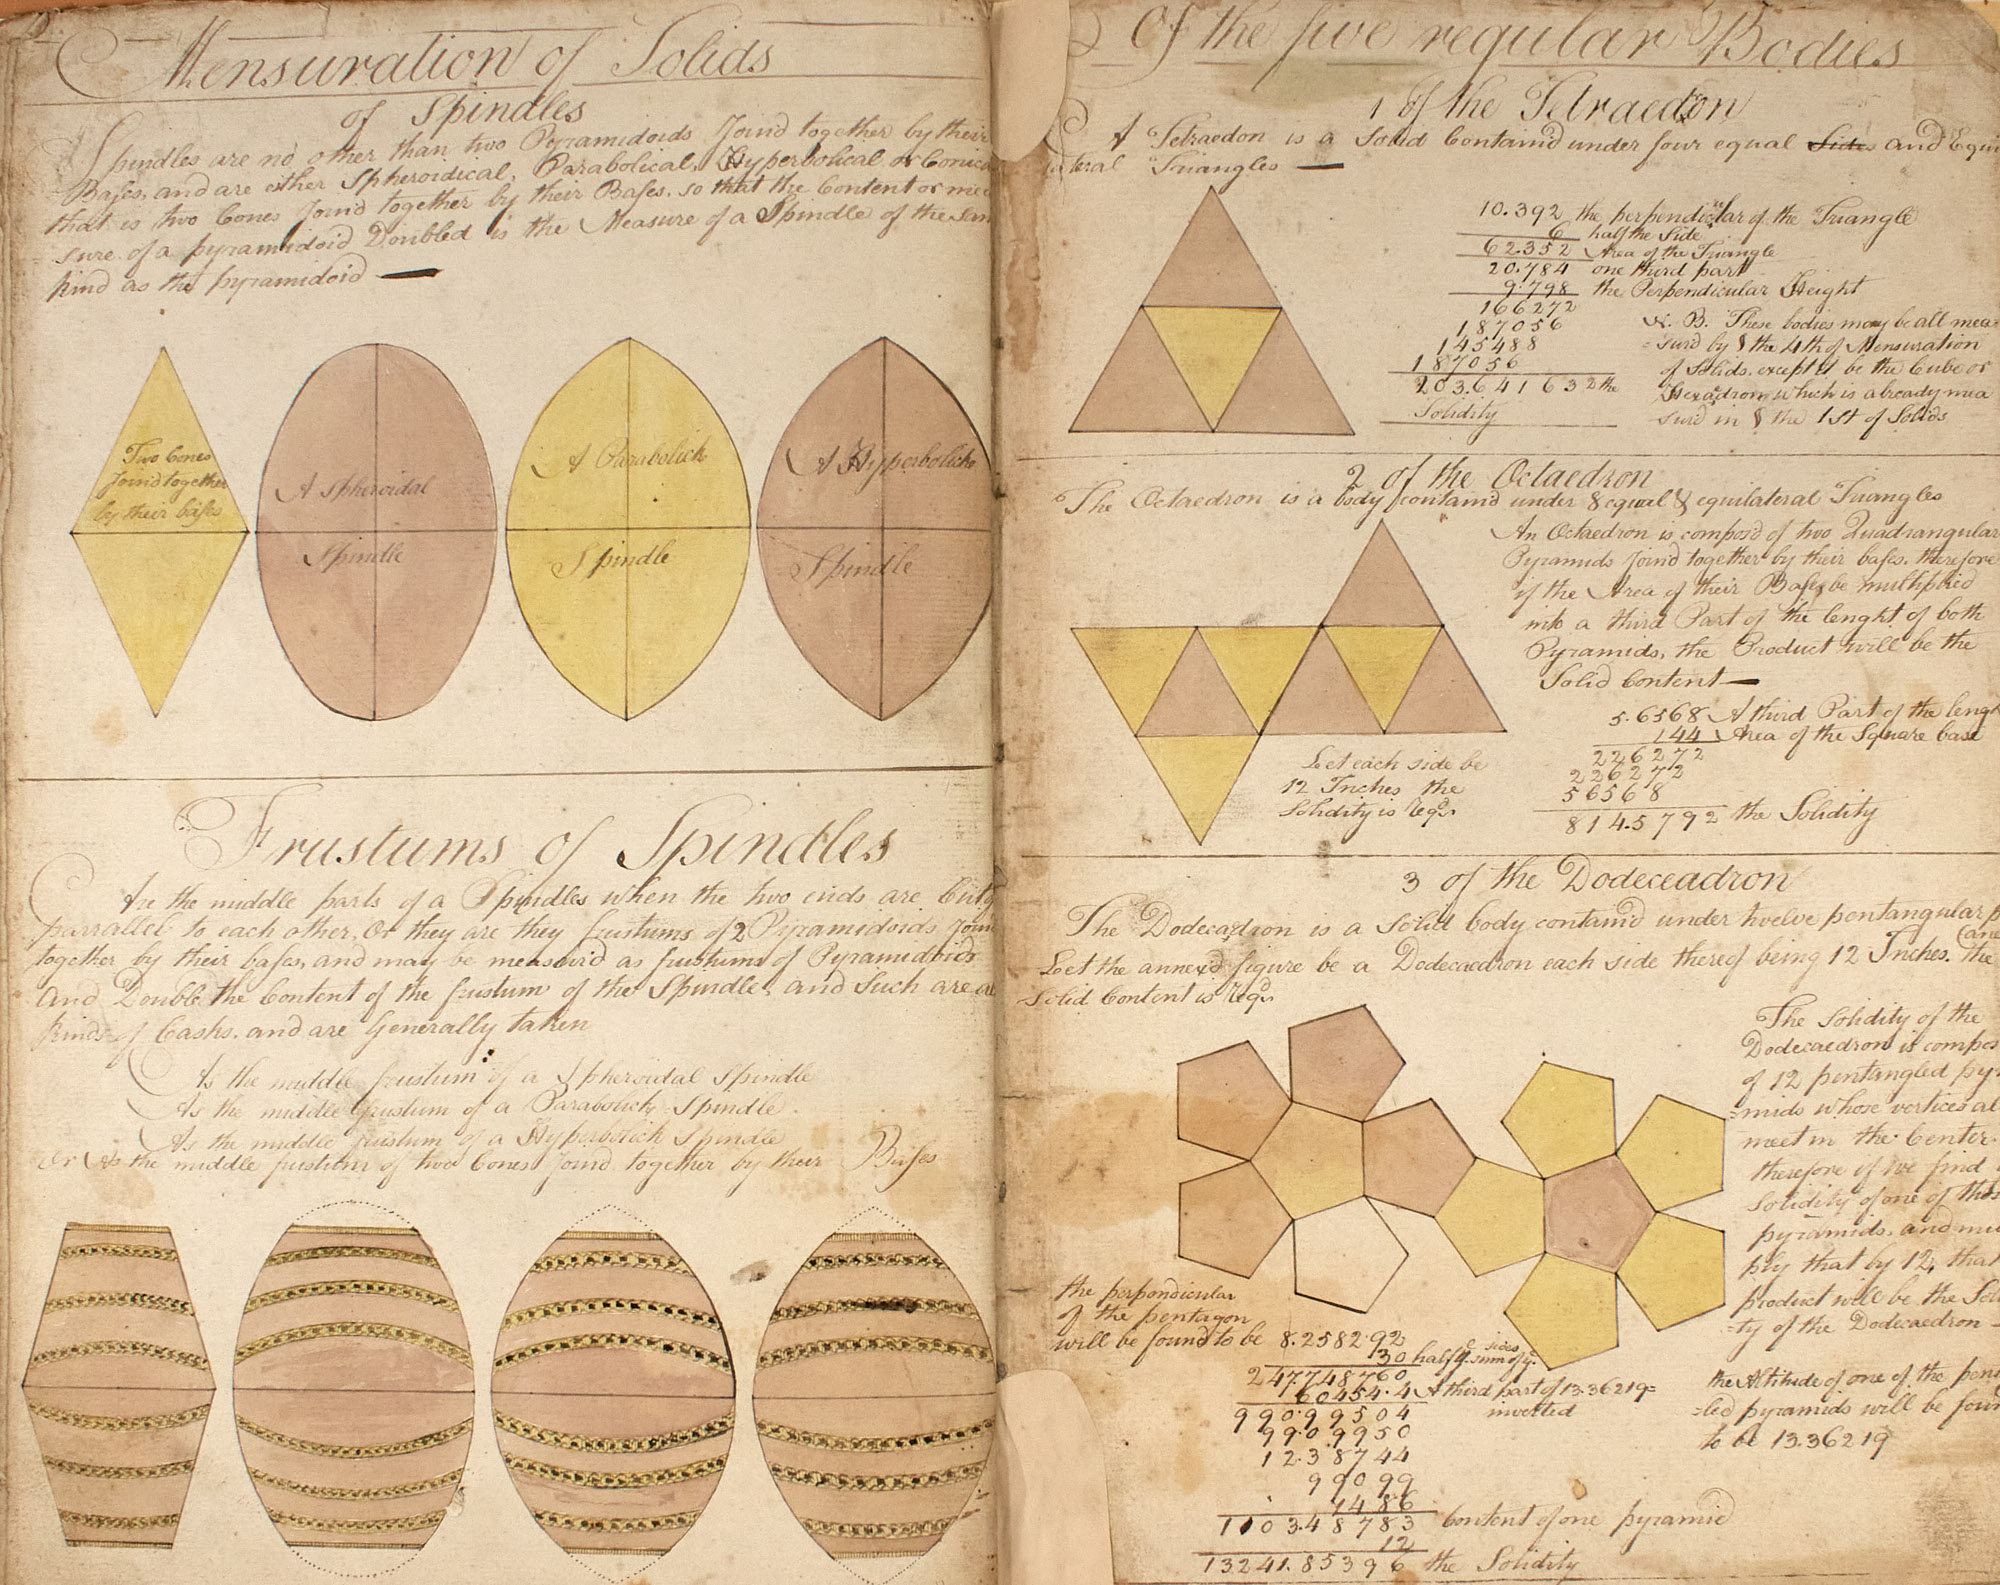 Mensuration of Solids
of Spindles
Spindles are no other than two Pyramidoids Joind together by their
Bases, and are either Spheroidical, Parabolical, Hyperbolical or Conica
that is two Cones Joind together by their Bases. so that the Content or mea
sure of a pyramidoid Doubled is the Measure of a Spindle of the Sam
kind as the pyramidoid
Two Cones
Joind together
by their bases
A Spheroidal
Spindle
A Parabolick
Spindle
A Hyperbolick
Spindle
Frustums of Spindles
Are the middle parts of a Spindles when the two ends are Cut
parrallel to each other. Or they are they frustums of 2 Pyramidoids Joind
together by their bases, and may be measurd as frustums of Pyramidoids
And Double the Content of the frustum of the Spindle, and Such are al
kinds of Casks. and are Generally taken
As the middle frustum of a Spheroidal Spindle
As the middle frustum of a Parabolick Spindle
As the middle frustum of a Hyperbolick Spindle
Or As the middle frustum of two Cones Joind together by their Bases
Of the five regular Bodies
1 of the Tetraedon
A Tetraedon is a Solid Containd under four equal Sides and Equi
lateral Triangles
10.392 the perpendicular of the Triangle
6 half the Side
62.352 Area of the Triangle
20.784 one third part
9.798 the Perpendicular Height
166272
187056
145488
187056
203.641632 the
Solidity
N. B. These bodies may be all mea=
=surd by § the 4th of Mensuration
of Solids. except it be the Cube or
Hexaedron, which is already mea
surd in § the 1st of Solids
2 of the Octaedron
The Octaedron is a body containd under 8 equal & equilateral Triangles
An Octaedron is composd of two Quadrangular
Pyramids Joind together by their bases. therefore
if the Area of their Bases be multiplied
into a third Part of the lenght of both
Pyramids, the Product will be the
Solid Content
5.6568 A third Part of the lengh
144 Area of the Square base
226272
226272
56568
814.5792 the Solidity
Let each side be
12 Inches the
Solidity is Reqd.
3 of the Dodeceadron
The Dodecaedron is a Solid body containd under twelve pentangular p
Let the annex'd figure be a Dodecaedron each side thereof being 12 Inches. the
Solid Content is Reqd.
The Solidity of the
Dodecaedron is compos
of 12 pentangled pyr
=mids whose vertices al
meet in the Center.
therefore if we find
Solidity of one of thos
pyramids. and mul
ply that by 12, that
product will be the Soli
=ty of the Dodecaedron
the perpendicular
of the pentagon
will be found to be 8.258292
30 half ye sum of ye sides
247.748760
60454.4 A third part of 13.36219=
inverted
990.99504
99.09950
12.38744
99099
7486
1103.48783 Content of one pyramid
12
13241.85396 the Solidity
the Altitude of one of the pent
=led pyramids will be foun
to be 13.36219